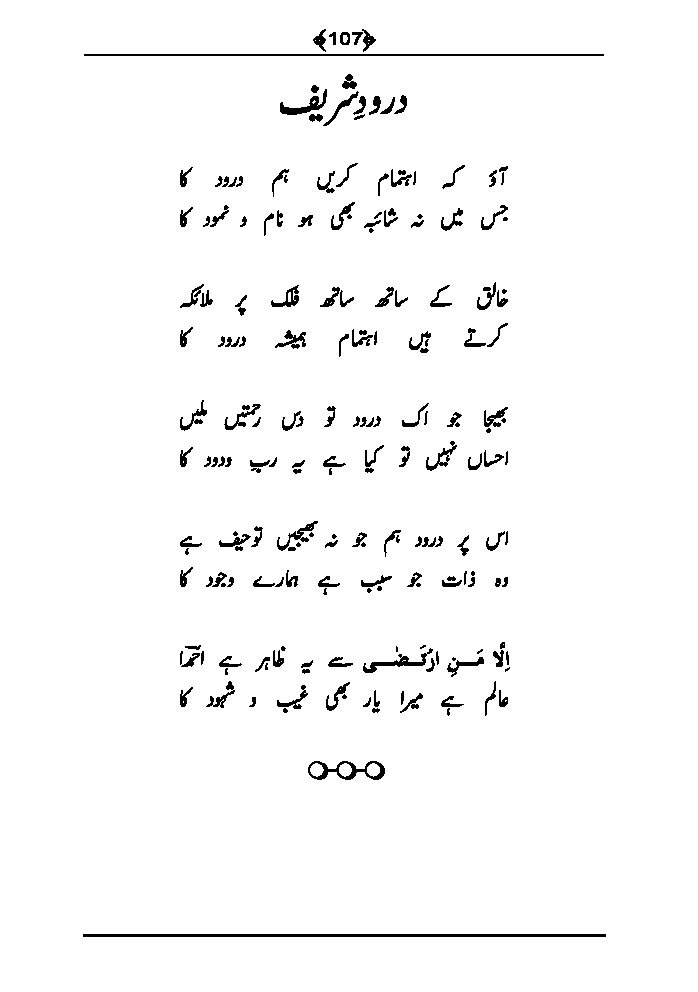 ﴿107﴾
درودِ شریف
آؤ کہ اہتمام کریں ہم درود کا
جس میں نہ شائبہ بھی ہو نام و نمود کا
خالق کے ساتھ ساتھ فلک پر ملائکہ
کرتے ہیں اہتمام ہمیشہ درود کا
بھیجا جو اک درود تو دس رحمتیں ملیں
احساں نہیں تو کیا ہے یہ ربِ ودود کا
اس پر درود ہم جو نہ بھیجیں تو حیف ہے
وہ ذات جو سبب ہے ہمارے وجود کا
اِلَّا مَــنِ ارْتَــضٰــی سے یہ ظاہر ہے احمدؔا
عالم ہے میرا یار بھی غیب و شہود کا